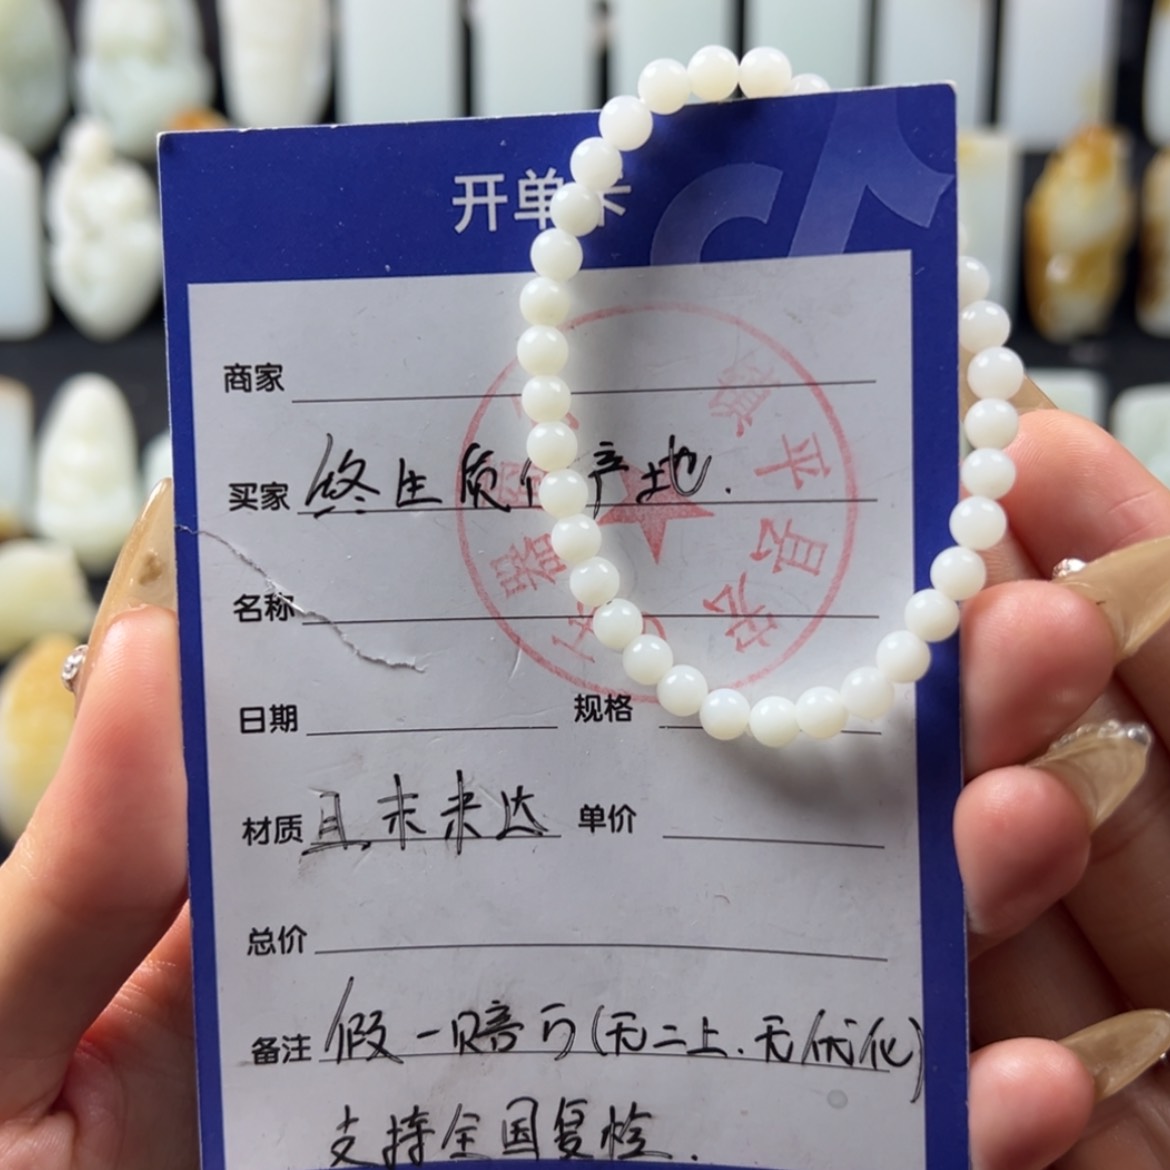 开单卡
商家
买家 终生质保产地.
名称
日期 规格
材质 且末来达 单价
总价
备注 假一赔万(无二上.无优化)
支持全国复检.
镇平县宏